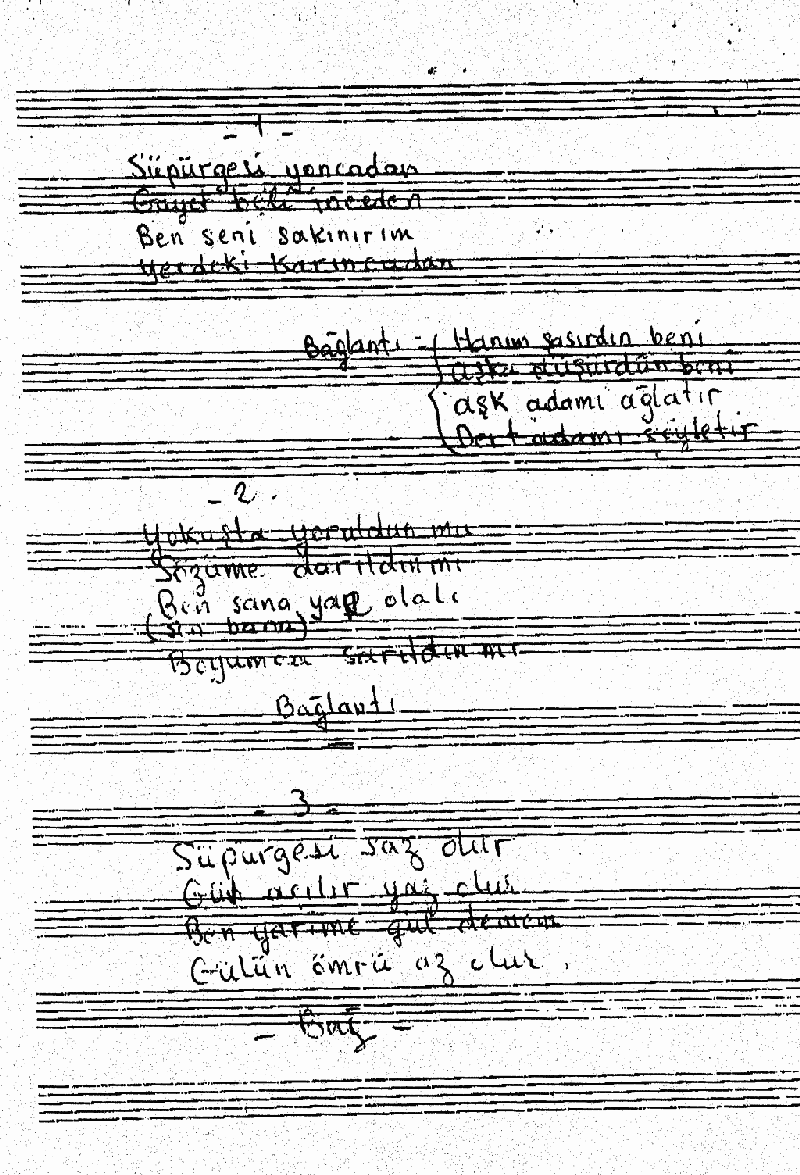 - 1 -
Süpürgesi yoncadan
Gayet beli inceden
Ben seni sakınırım
yerdeki karıncadan
Bağlantı - Hanım şaşırdın beni
aşka düşürdün beni
aşk adamı ağlatır
Dert adamı söyletir
- 2 .
Yokuşta yoruldun mu
Sözüme darıldın mı
Ben sana yar olalı
(sen bana)
Boyumca sarıldın mı
Bağlantı
- 3 -
Süpürgesi saz olur
Gün açılır yaz olur
Ben yarime gül demem
Gülün ömrü az olur .
- Bağ -